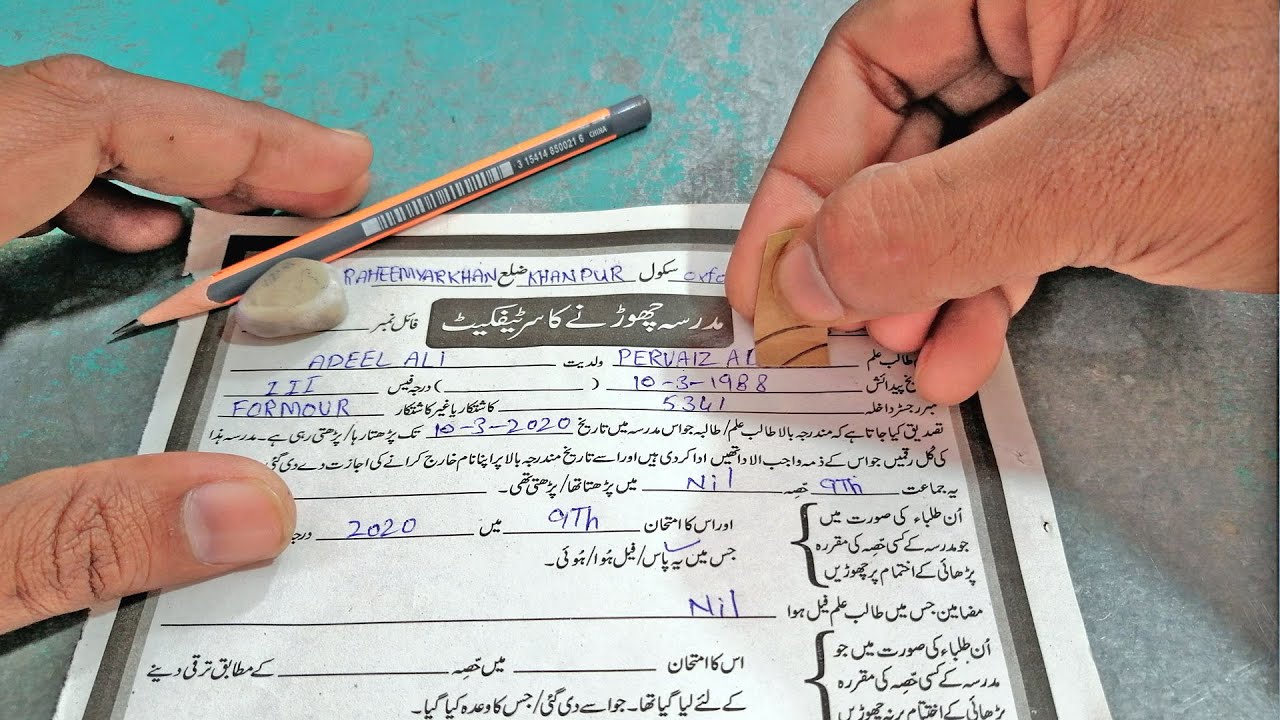 3 15414 850021 6 CHINA
oxfo سکول KHANPUR ضلع RAHEEMYARKHAN
مدرسہ چھوڑنے کا سرٹیفکیٹ
فائل نمبر
طالب علم PERVAIZ AL ولدیت ADEEL ALI
پیدائش 10-3-1988 ( ) درجہ فیس III
نمبر رجسٹر داخلہ 5341 کاشتکار یا غیر کاشتکار FORMOUR
تصدیق کیا جاتا ہے کہ مندرجہ بالا طالب علم/ طالبہ جو اس مدرسہ میں تاریخ 10-3-2020 تک پڑھتا رہا/ پڑھتی رہی ہے۔ مدرسہ ہذا
کی کُل رقمیں جو اس کے ذمہ واجب الادا تھیں ادا کر دی ہیں اور اسے تاریخ مندرجہ بالا پر اپنا نام خارج کرانے کی اجازت دے دی گئی
یہ جماعت 9Th حصّہ Nil میں پڑھتا تھا/ پڑھتی تھی۔
اُن طلباء کی صورت میں
جو مدرسہ کے کسی حصّہ کی مقررہ
پڑھائی کے اختتام پر چھوڑیں
اور اس کا امتحان 9Th میں 2020
جس میں یہ پاس/ فیل ہُوا/ ہُوئی۔
مضامین جس میں طالب علم فیل ہوا Nil
اُن طلباء کی صورت میں جو
مدرسہ کے کسی حصّہ کی مقررہ
پڑھائی کے اختتام پر نہ چھوڑیں
اس کا امتحان میں حصّہ کے مطابق ترقی دینے
کے لئے لیا گیا تھا۔ جو اسے دی گئی/ جس کا وعدہ کیا گیا۔